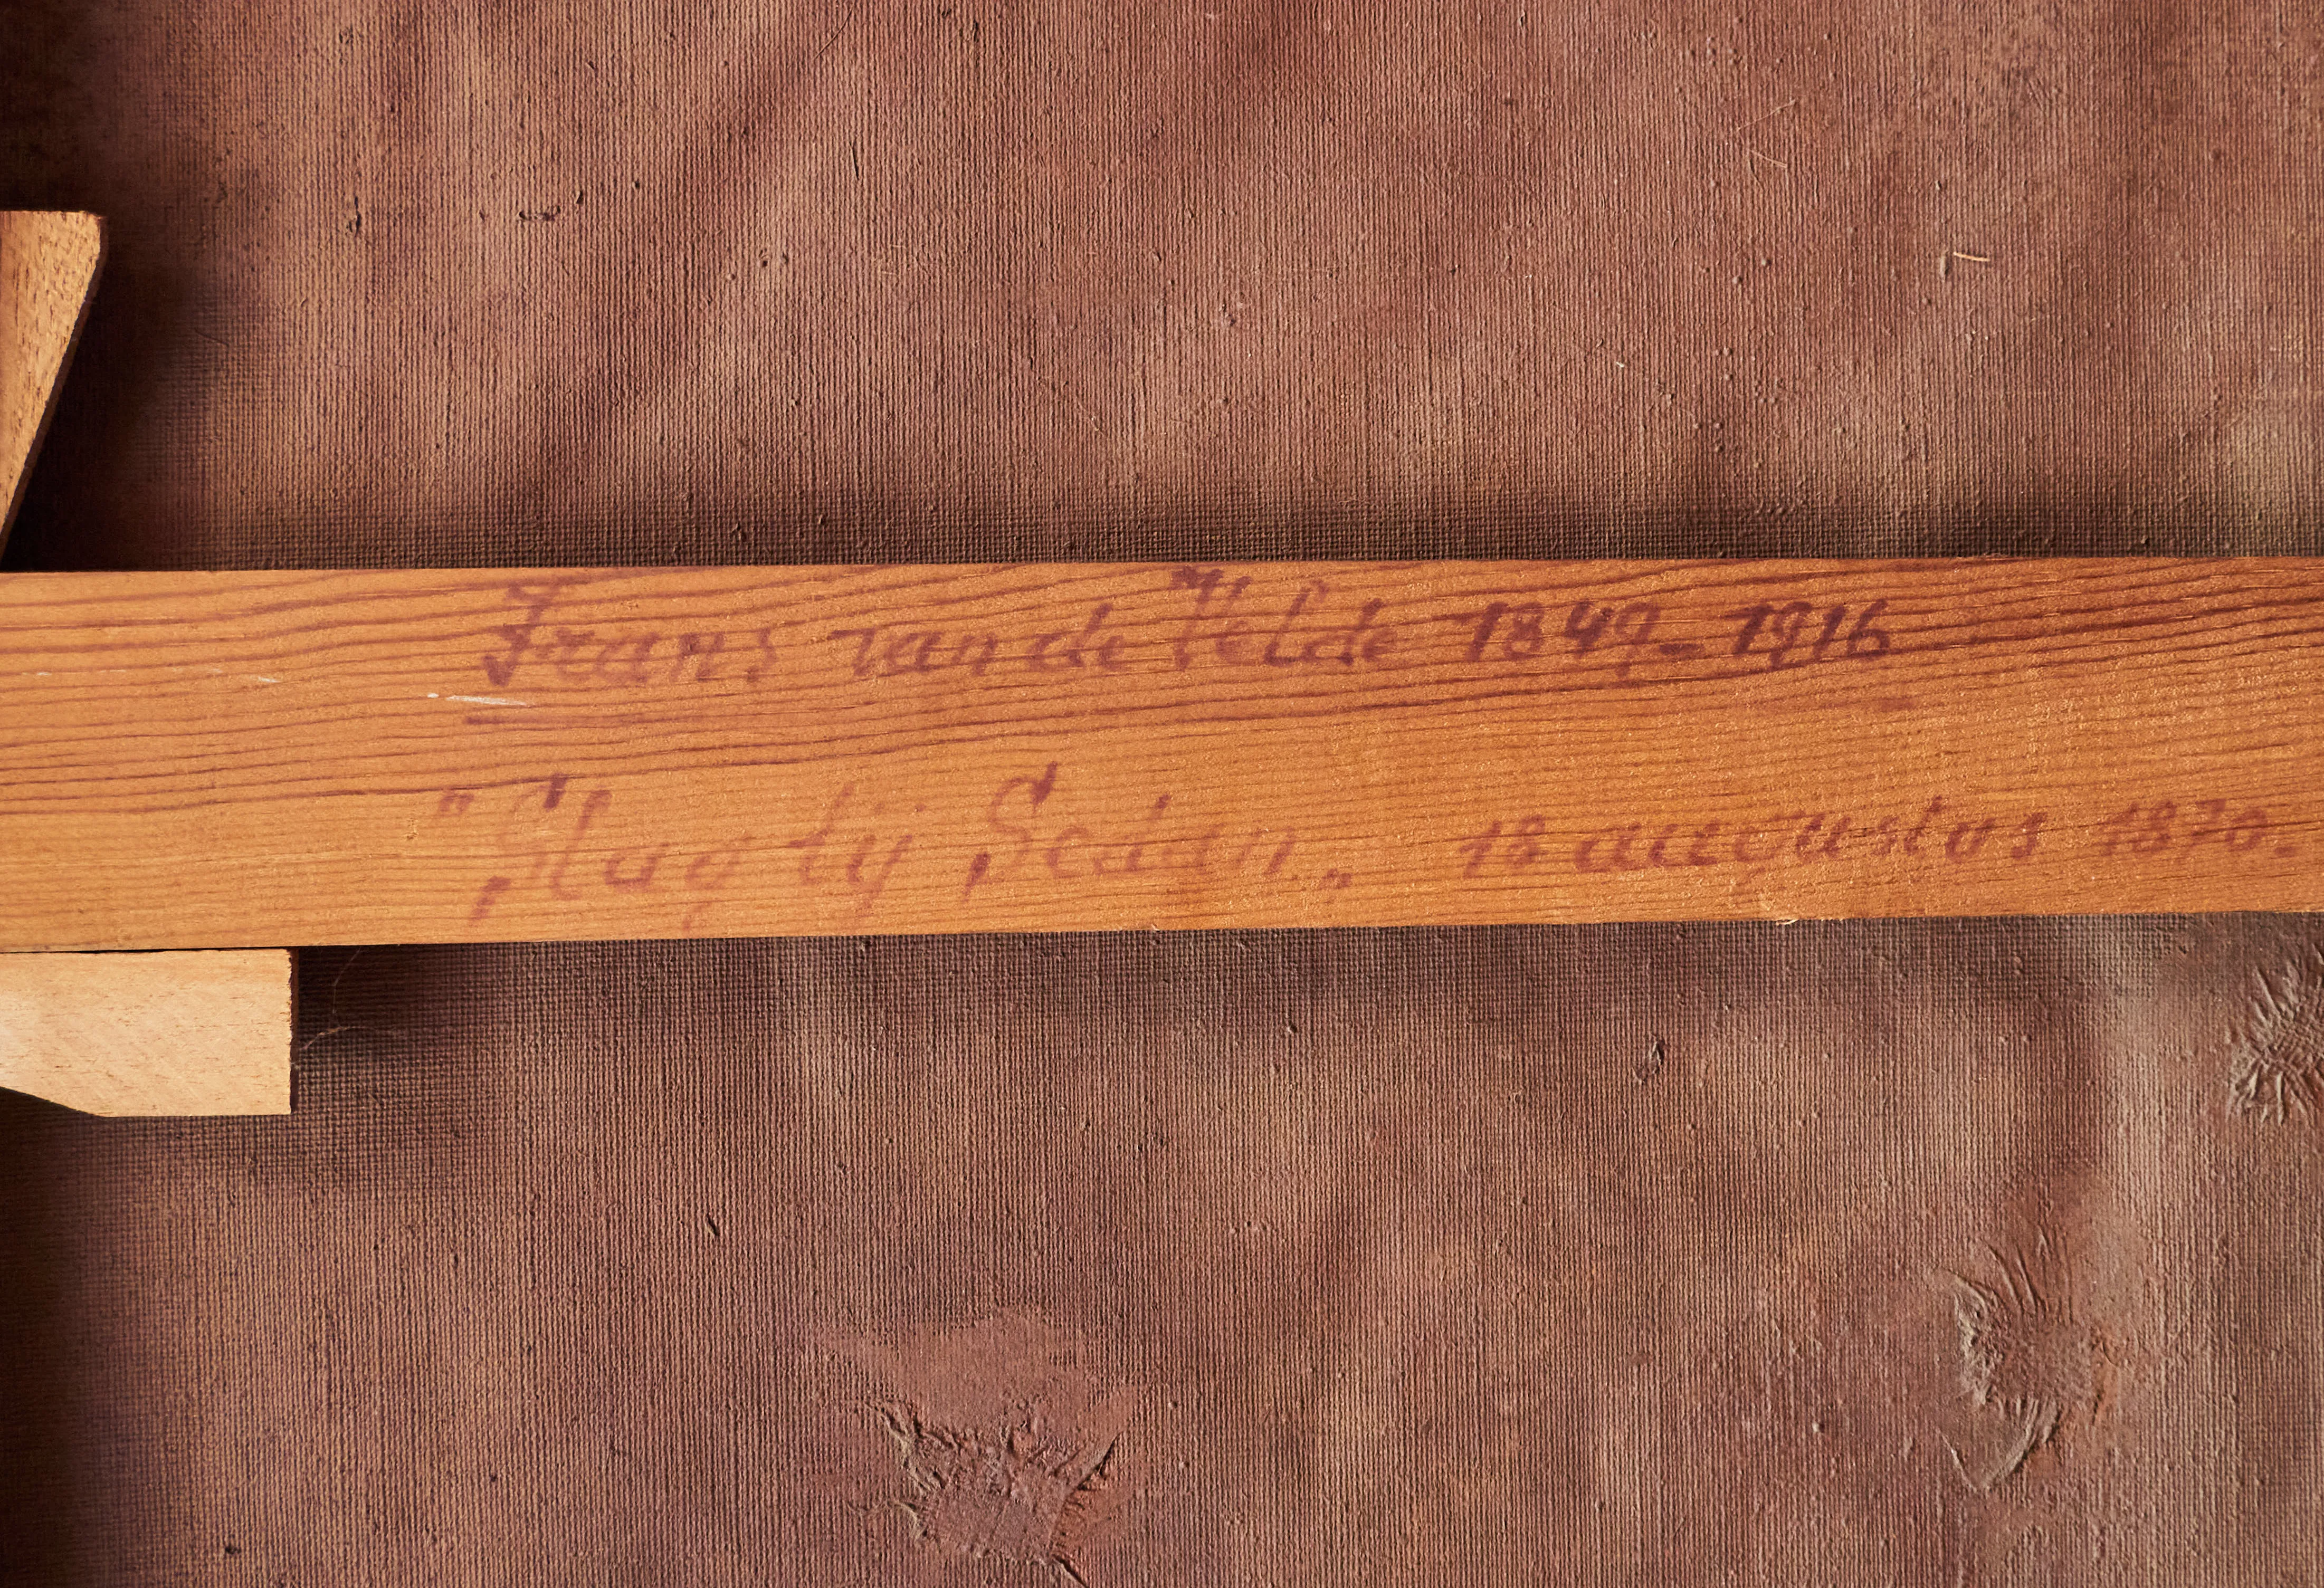 Frans van de Velde 1849-1916
"Slag bij Sedan„ 18 augustus 1870.